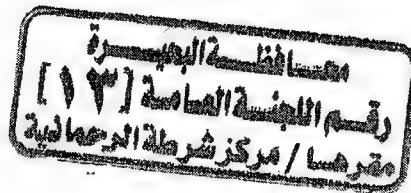 محافظة البحيرة
رقم اللجنة العامة [١٣]
مقرها / مركز شرطة الرحمانية